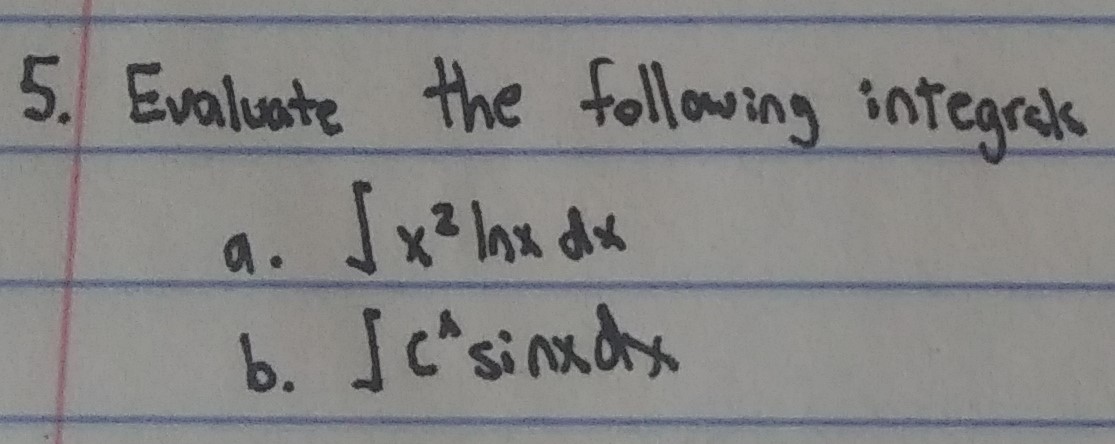 5. Evaluate the following integrals
a. ∫x² lnx dx
b. ∫e^x sinx dx